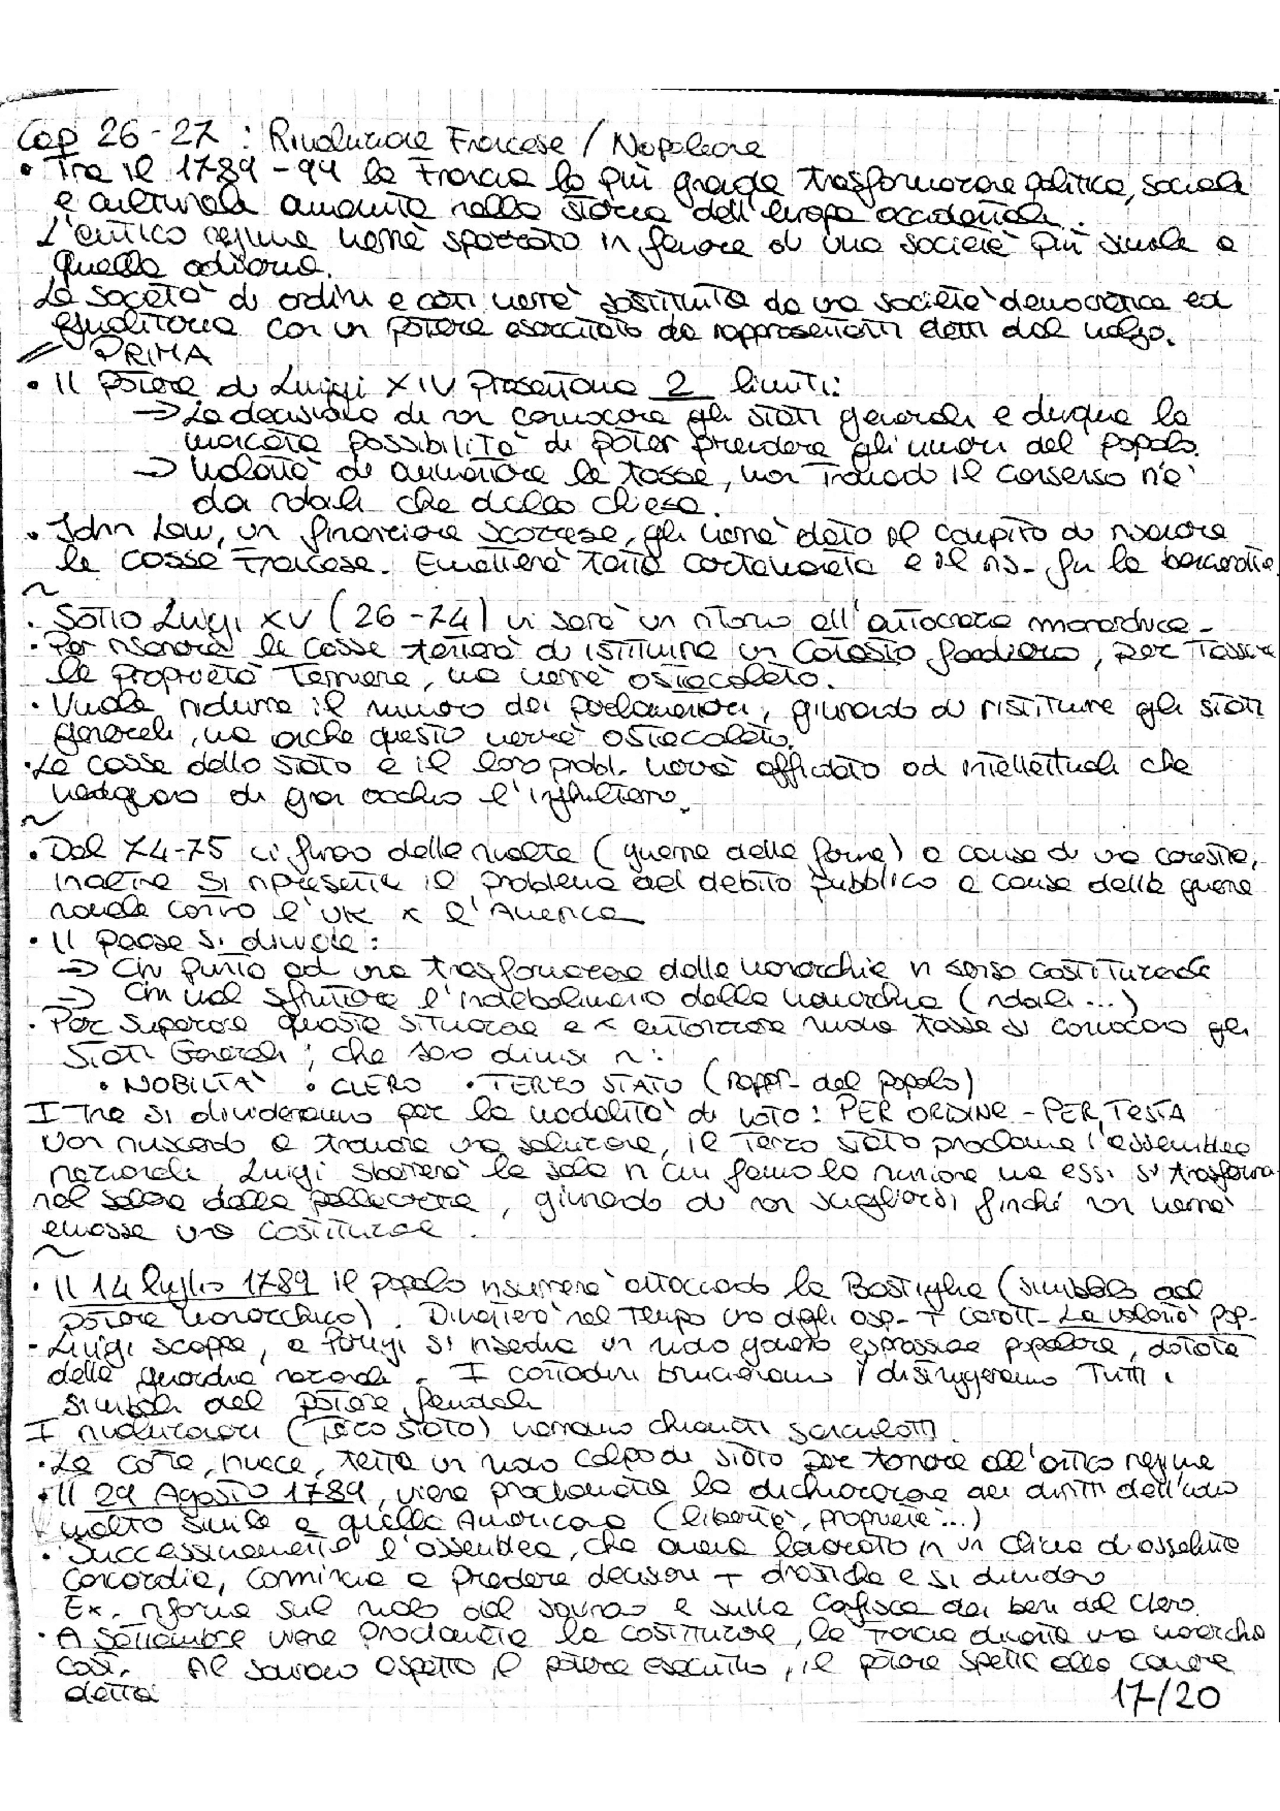 Cap 26-27 : Rivoluzione Francese / Napoleone
• Tra il 1789-94 la Francia la più grande trasformazione politica, sociale
e culturale avvenuta nella storia dell'europa occidentale.
L'antico regime verrà spazzato in favore di una società più simile a
quella odierna.
La società di ordini e ceti verrà sostituita da una società democratica ed
egualitaria con un potere esercitato da rappresentanti eletti dal volgo.
PRIMA
• Il potere di Luigi XIV presentava 2 limiti:
→ La decisione di non convocare gli stati generali e dunque la
mancata possibilità di poter prendere gli umori del popolo.
→ Volontà di aumentare le tasse, non trovando il consenso né
dai nobili che dalla chiesa.
• John Law, un finanziere scozzese, gli verrà dato il compito di risanare
le casse francese. Emetterà tanta cartamoneta e il ris. fu la bancarotta
~
• Sotto Luigi XV (26-74) vi sarà un ritorno all'autocrazia monarchica.
• Per risanare le casse tenterà di istituire un Catasto fondiario, per tassare
le proprietà terriere, ma verrà ostacolato.
• Vuole ridurre il numero dei parlamentari, giurando di ristituire gli stati
generali, ma anche questo verrà ostacolato.
• Le casse dello stato e il loro probl. verrà affidato ad intellettuali che
vedevano di gran occhio l'inghilterra.
~
• Dal 74-75 ci furono delle rivolte (guerra delle farine) a causa di una carestia,
inoltre si ripresenta il problema del debito pubblico a causa della guerra
navale contro l'UK x l'America
• Il paese si divide:
→ Chi punta ad una trasformazione della monarchia in senso costituzionale
→ Chi vuol sfruttare l'indebolimento della monarchia (nobili ...)
• Per superare questa situazione e x autorizzare nuove tasse si convocano gli
Stati Generali, che sono divisi in:
• NOBILTÀ • CLERO • TERZO STATO (rappr. del popolo)
I tre si divideranno per la modalità di voto: PER ORDINE - PER TESTA
Non riuscendo a trovare una soluzione, il Terzo stato proclama l'assemblea
nazionale. Luigi sbarrerà la sala in cui fanno la riunione ma essi si trasferiranno
nel salone della pallacorda, giurando di non sciogliersi finché non verrà
emossa una costituzione.
~
• Il 14 luglio 1789 il popolo insurrerà attaccando la Bastiglia (simbolo del
potere monarchico). Diventerà nel tempo uno degli asp. + caratt. La volontà pop.
• Luigi scappa, a Parigi si insedia un nuovo governo espressione popolare, dotata
della guardia nazionale. I contadini bruceranno / distruggeranno tutti i
simboli del potere feudale
I rivoluzionari (Terzo stato) verranno chiamati sanculotti.
• La corte, invece, tenta un nuovo colpo di stato per tornare all'antico regime
• Il 29 Agosto 1789, viene proclamata la dichiarazione dei diritti dell'uomo
molto simile a quella Americana (libertà, proprietà...)
• Successivamente l'assemblea, che aveva lavorato in un clima di assoluta
concordia, comincia a prendere decisioni + drastiche e si dividono
Ex. riforma sul ruolo del sovrano e sulla Confisca dei beni del Clero.
• A Settembre viene proclamata la costituzione, la Francia diventa una monarchia
cost. Al sovrano aspetta il potere esecutivo, il potere spetta alla camera
detta
17/20